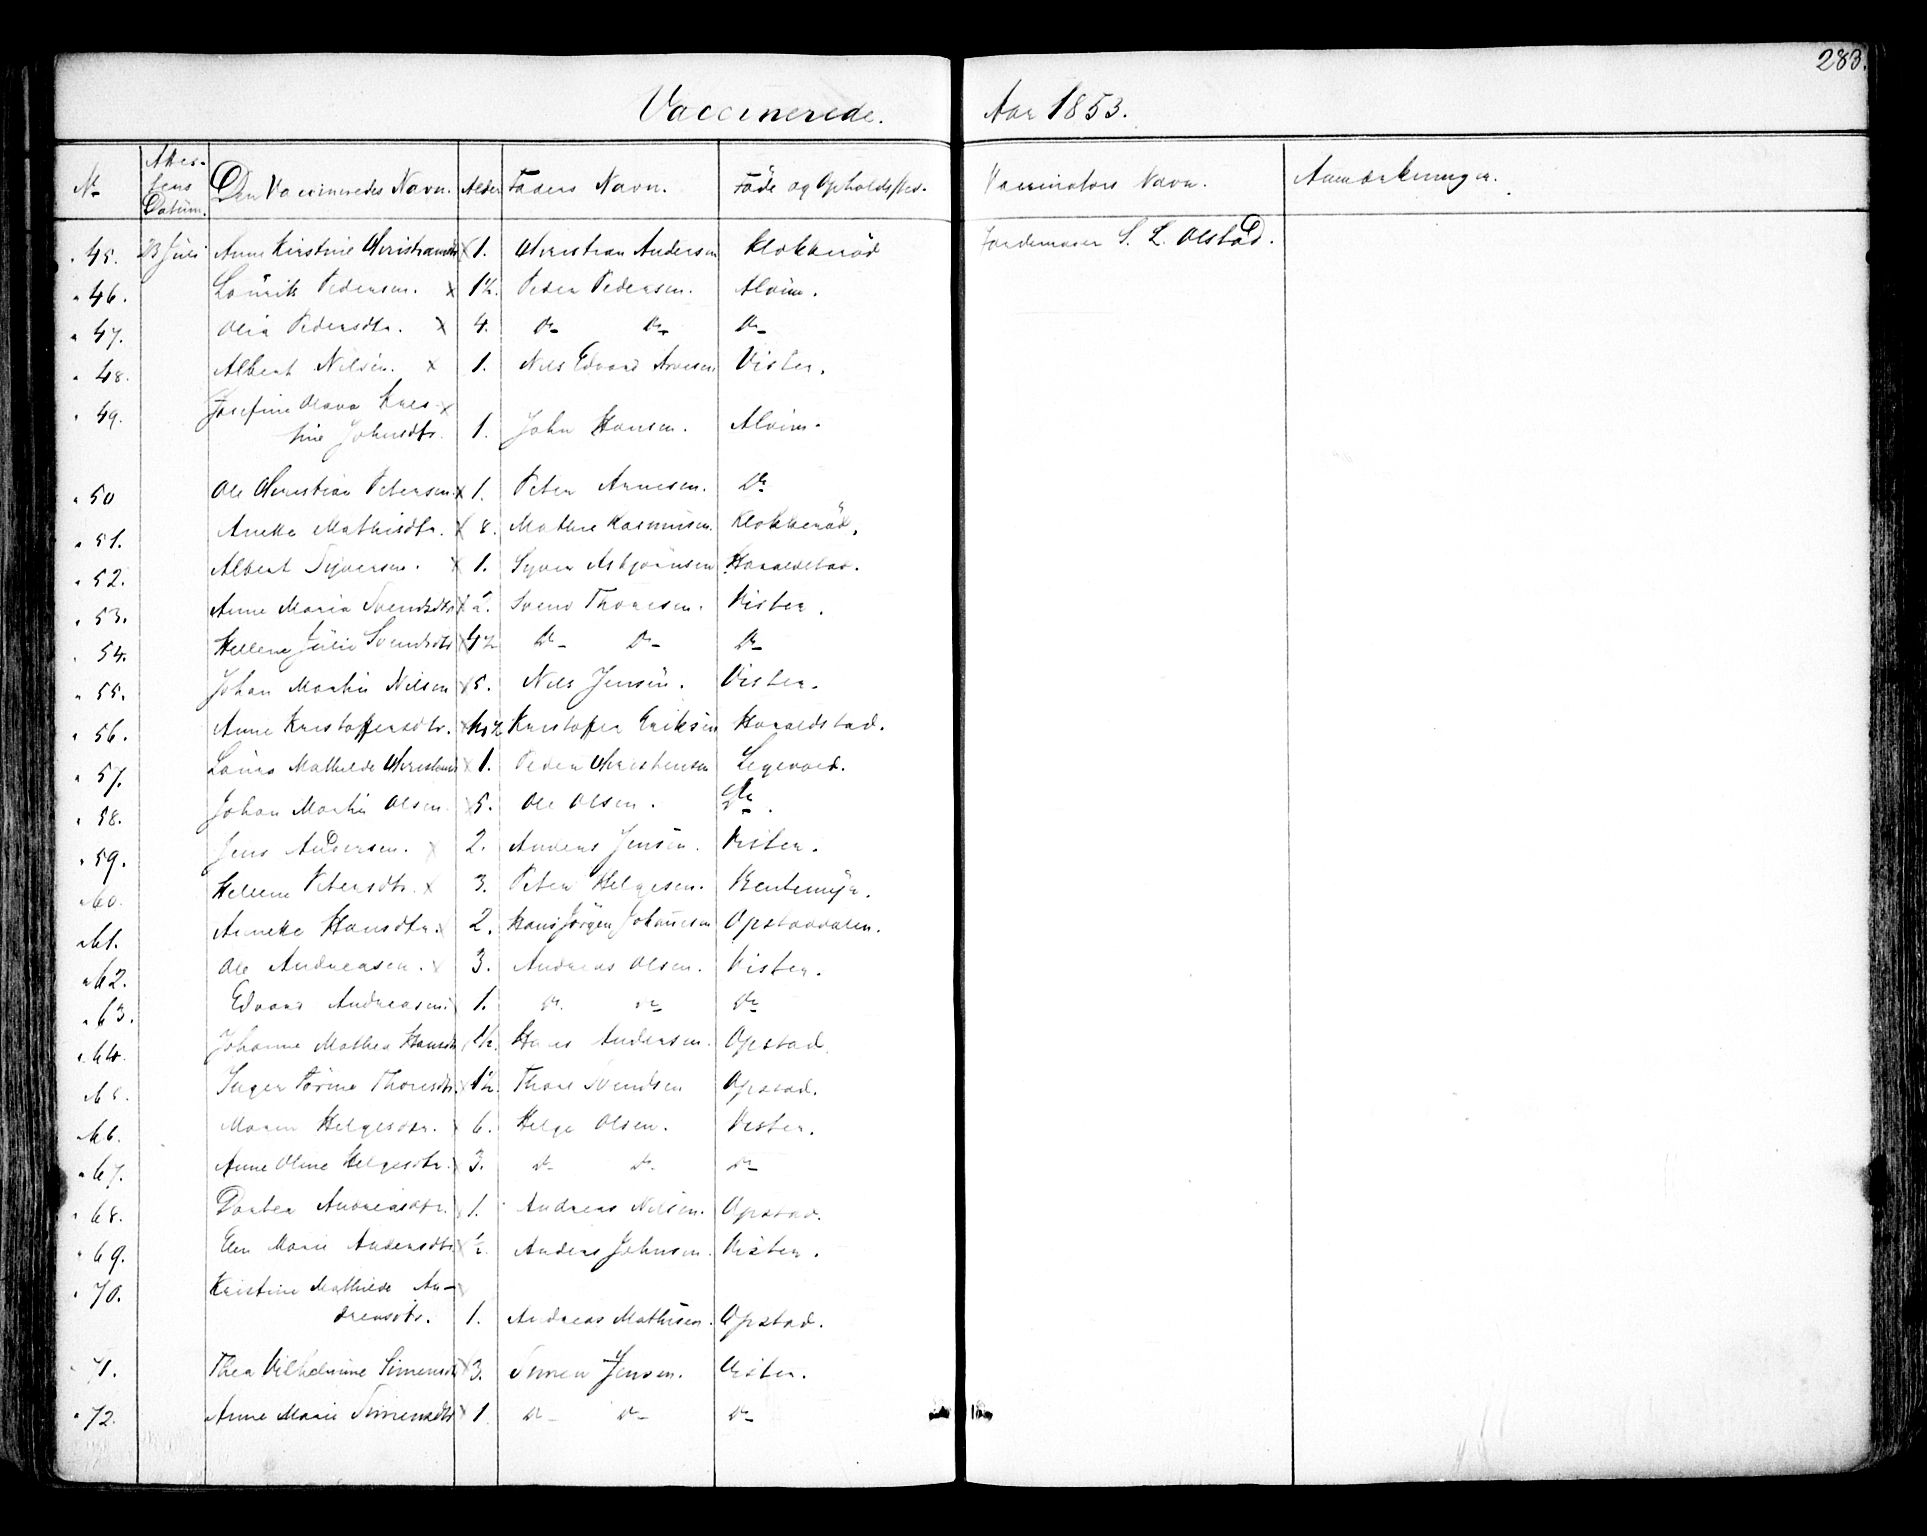 283.
Vaccinerede. Aar 1853.
No Attestens Datum. Den Vaccineredes Navn. Alder Faders Navn. Föde og Opholds sted. Vaccinators Navn. Anmærkninger.
" 45. 23 Juli Anne Kirstine Christiansdtr x 1. Christian Andersen Klokkeröd Jordemoer S. L. Olstad.
" 46. Laurits Pedersen. x 1½. Peder Pedersen. Alvim.
" 47. Olia Pedersdtr. x 4. Do Do Do
" 48. Albert Nilsen. x 1. Nils Edvard Arvesen Vister.
" 49. Josefine Olava Kris- x
tine Johnsdtr. 1. John Hansen. Alvim.
" 50 Ole Christian Petersen x 1. Peter Arnesen. Do
" 51. Aneke Mathisdtr. x 8. Mathis Rasmusen Klokkeröd.
" 52. Albert Syversen. x 1. Syver Asbjørnsen Haraldstad.
" 53. Anne Maria Svendsdtr x ½. Svend Thoresen. Vister.
" 54. Hellene Julie Svendsdtr x 4½ Do Do Do
" 55. Johan Martin Nilsen x 5. Nils Jensen. Vister.
" 56. Anne Kristoffersdtr. x Kristoffer Eriksen Haraldstad.
" 57. Mathilde x 1. Peder Christensen
" 58. Johan Martin Olsen x 5. Ole Olsen. Do.
" 59. Jens Andersen. x 2. Anders Jensen. Vister.
" 60. Hellene Petersdtr. x 3. Peter Helgesen.
" 61. Anneke Hansdtr. x 2. Hans Jörgen Johannesen Opstaddalen.
" 62. Ole Andreasen. x 3. Andreas Olsen. Vister.
" 63. Edvard Andreasen. 1. Do. Do Do
" 64. Johanne Mathea Hansdtr 1½. Hans Andersen. Opstad.
" 65. Inger Thoresdtr. x 1½. Thore Svendsen Opstad.
" 66. Maren Helgesdtr. x 6. Helge Olsen. Vister.
" 67. Anne Oline Helgesdtr. x 3. Do Do. Do
" 68. Dortea Andreasdtr. x 1. Andreas Nilsen. Opstad.
" 69. Elen Marie Andersdtr x ½. Anders Johnsen. Vister.
" 70. Kristine Mathilde An- x
dreasdtr. 1. Andreas Mathisen. Opstad.
" 71. Thea Vilhelmine Simensdtr x 3. Simen Jensen. Vister.
" 72. Anne Marie Simensdtr x 1. Do Do Do